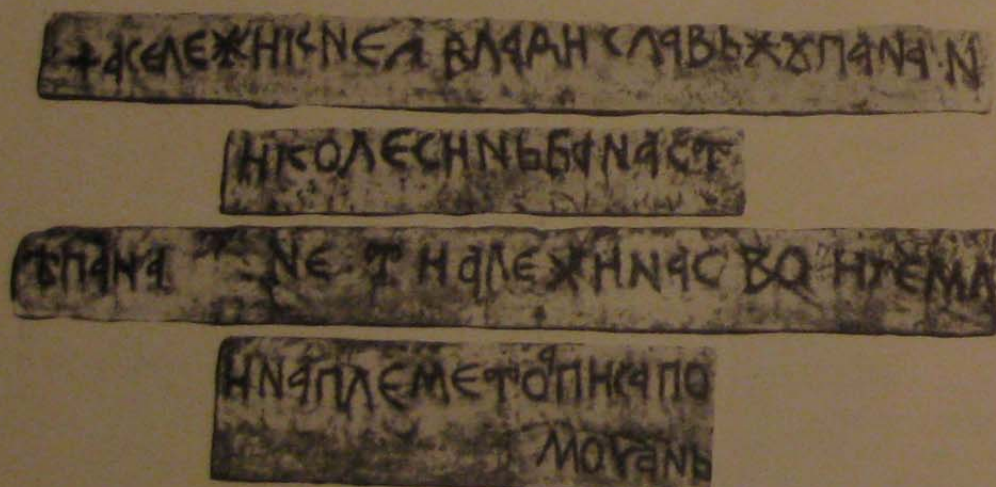 + АСЕЛЕЖИКНЕꙀ ВЛАДИСЛАВЬЖꙊПАНА·Н
ИКОЛЕСИНЬБАНАСТ
ѢПАНА НЕ Ꙉ ИАЛЕЖИНАСВО ИꙀЕМЛ
ИНАПЛЕМЕТОАПИСАПО
МОЧАНЬ